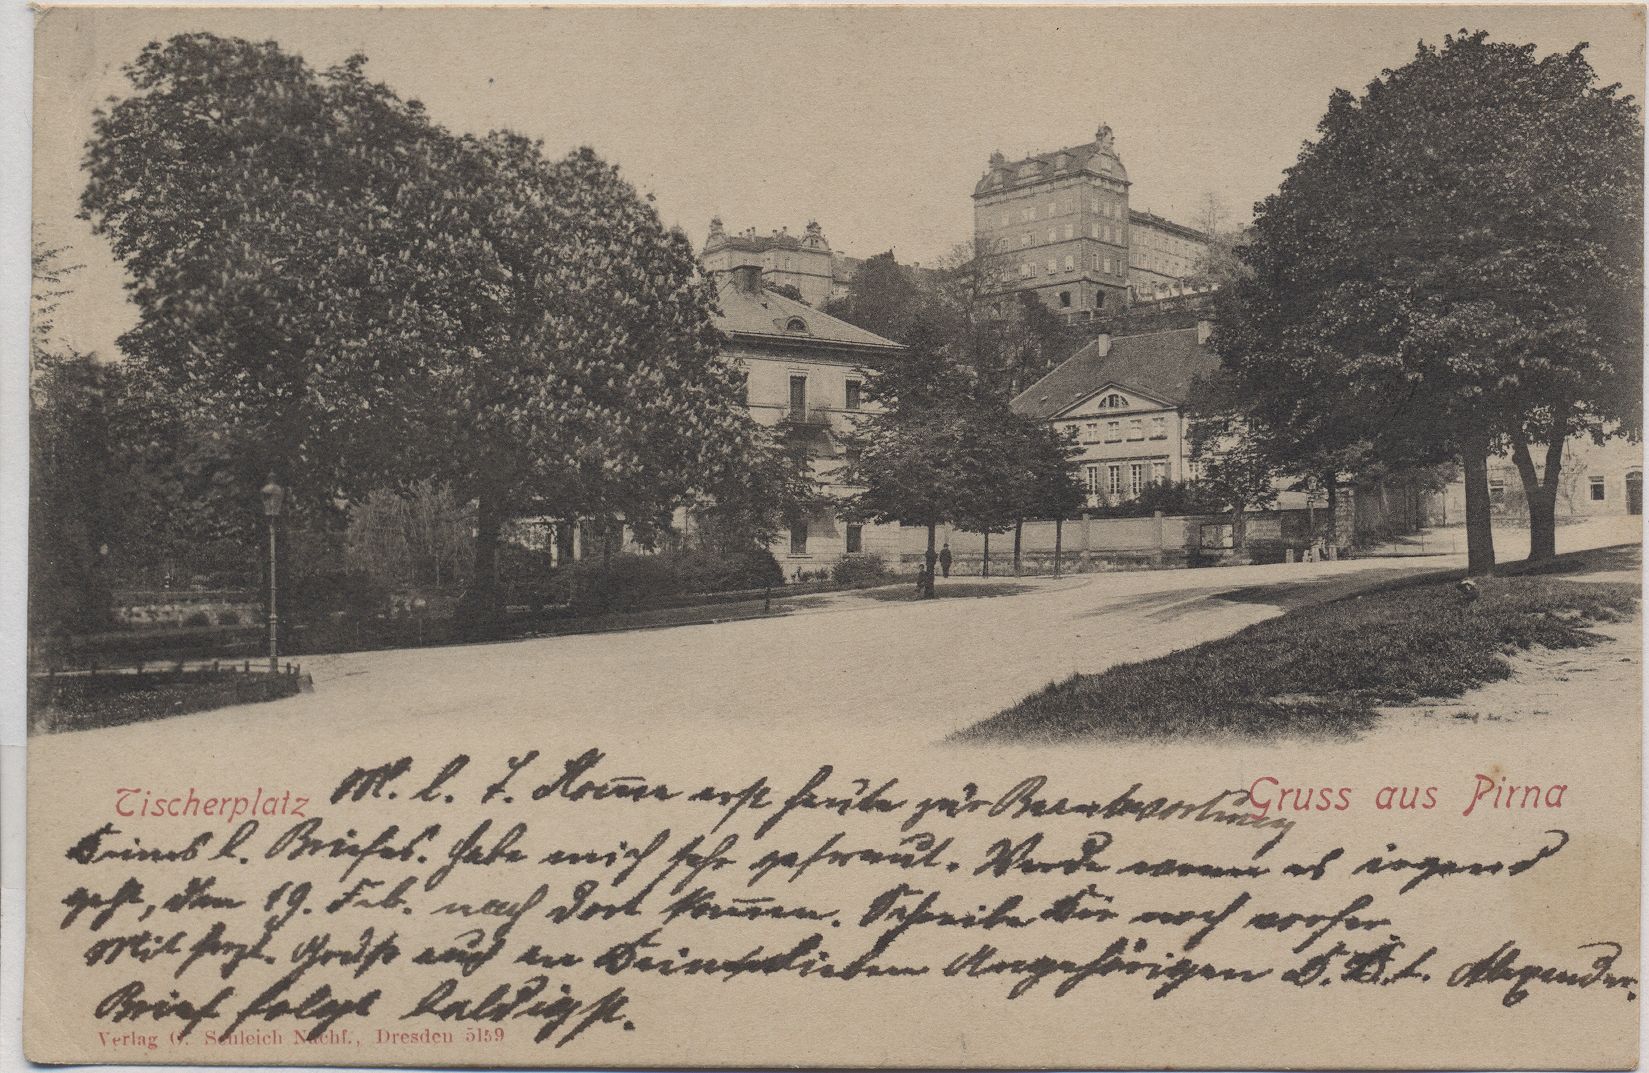 Tischerplatz
Gruss aus Pirna
M. l. F. Komme erst heute zur Beantwortung
Deines l. Briefes. Habe mich sehr gefreut. Werde wenn es irgend
geht, den 19. Feb. nach dort kommen. Schreibe Dir noch vorher.
Mit herzl. Gruß auch an Deine lieben Angehörigen D. Alexander.
Brief folgt baldigst.
Verlag G. Schleich Nachf., Dresden 5159